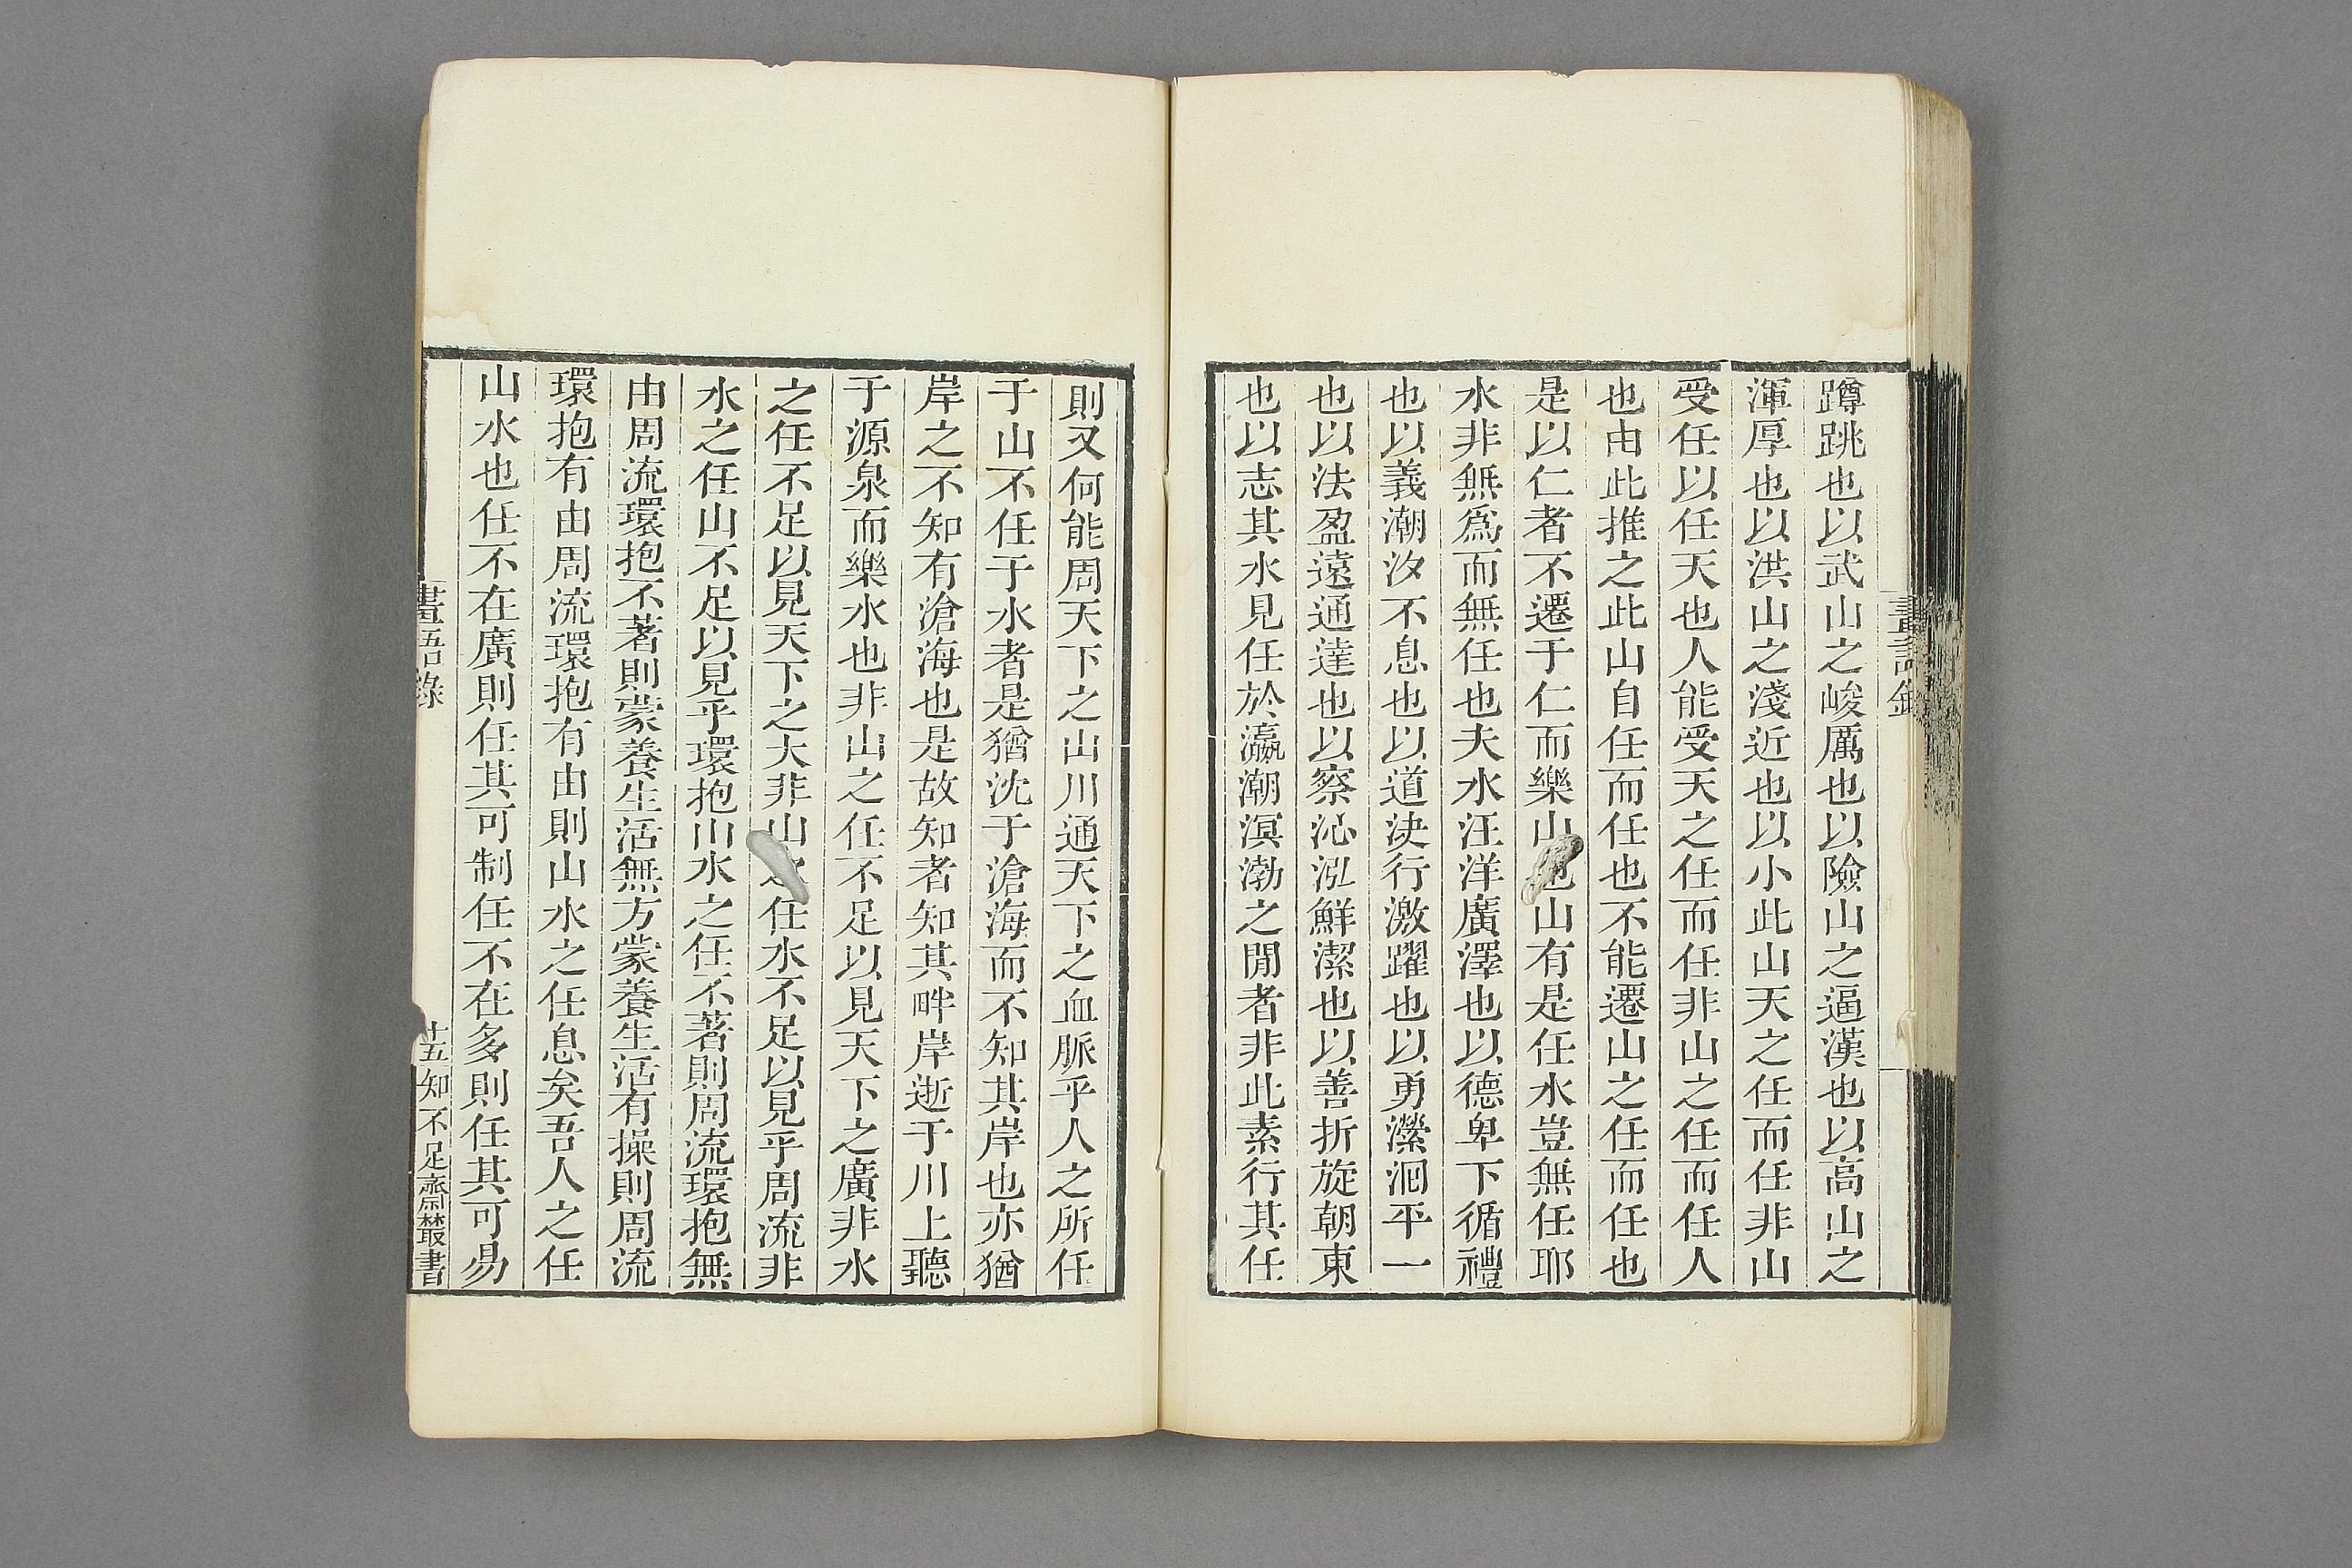 蹲跳也以武山之峻厲也以險山之逼漢也以高山之
渾厚也以洪山之淺近也以小此山天之任而任非山
受任以任天也人能受天之任而任非山之任而任人
也由此推之此山自任而任也不能遷山之任而任也
是以仁者不遷于仁而樂山也山有是任水豈無任耶
水非無爲而無任也夫水汪洋廣澤也以德卑下循禮
也以義潮汐不息也以道決行激躍也以勇瀠洄平一
也以法盈遠通達也以察沁泓鮮潔也以善折旋朝東
也以志其水見任於瀛潮溟渤之閒者非此素行其任
則又何能周天下之山川通天下之血脈乎人之所任
于山不任于水者是猶沈于滄海而不知其岸也亦猶
岸之不知有滄海也是故知者知其畔岸逝于川上聽
于源泉而樂水也非山之任不足以見天下之廣非水
之任不足以見天下之大非山之任水不足以見乎周流非
水之任山不足以見乎環抱山水之任不著則周流環抱無
由周流環抱不著則蒙養生活無方蒙養生活有操則周流
環抱有由周流環抱有由則山水之任息矣吾人之任
山水也任不在廣則任其可制任不在多則任其可易
畫語錄
十五
知不足齋叢書